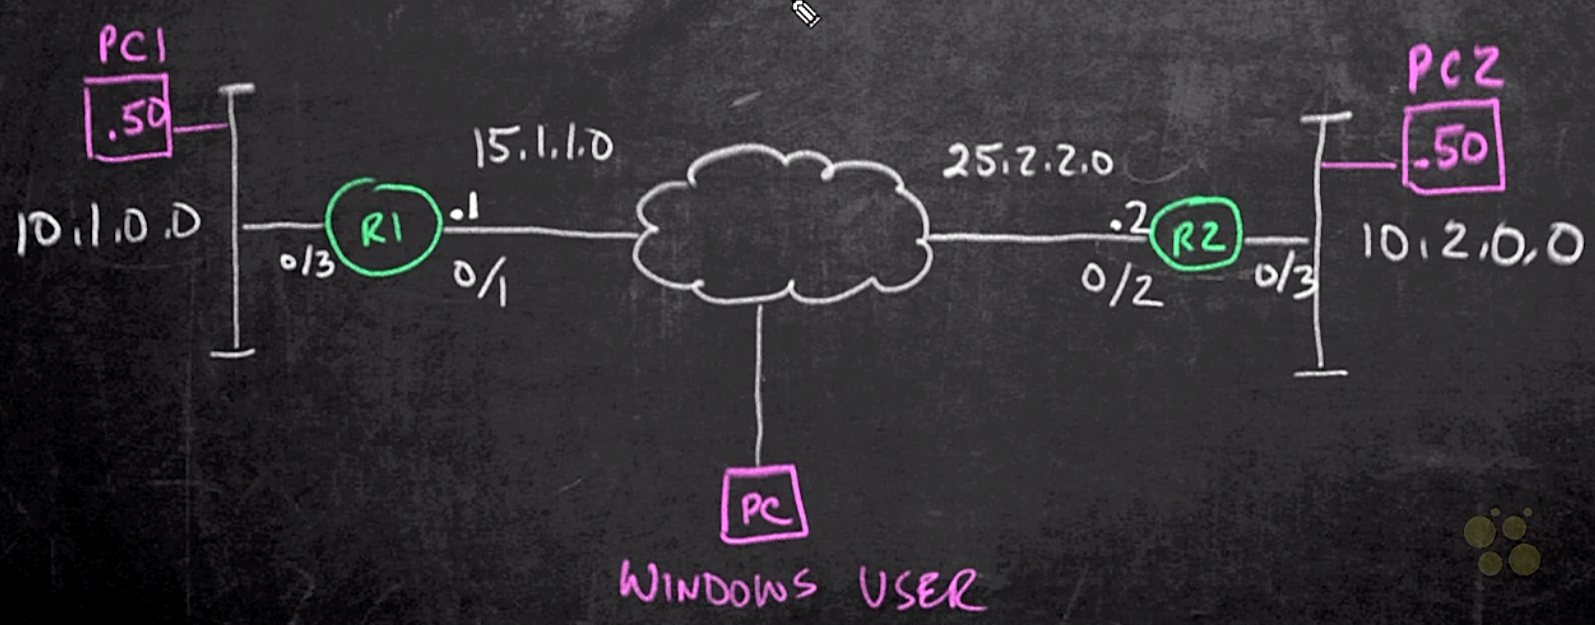 PC1
.50
10.1.0.0
0/3
R1
.1
0/1
15.1.1.0
25.2.2.0
.2
0/2
R2
0/3
PC2
.50
10.2.0.0
PC
WINDOWS USER